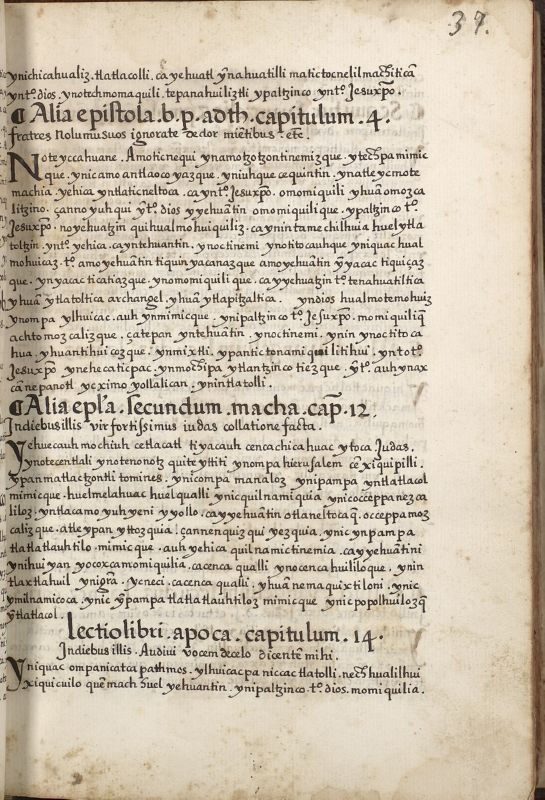 37.
ynichicahualiz. tlatlacolli. ca yehuatl ynahuatilli matictocnelilmachiticā
yntº dios. ynotechmomaquili. tepanahuiliztli ypaltzinco yntº Jesuxp̄o.
¶ Alia epistola. b. p. ad th. capitulum. 4.
fratres Nolumus uos ignorate de dormiētibus. etc̄.
Noteyccahuane. Amoticnequi ynamotzotzontinemizque. ytechpa mimic
que. ynicamo antlaocoyazque. yniuhque cequintin. ynatleycmote
machia. yehica yntlaticneltoca. ca yntº Jesuxp̄o. omomiquili yhuā omozca
litzino. çanno yuhqui ytº dios yyehuātin omomiquilique. ypaltzinco tº
Jesuxp̄o. noyehuatzin quihualmohuiquiliz. ca ynin tamechilhuia huel ytla
toltzin. yntº yehica. ca yntehuantin. ynoctinemi ynotitocauhque yniquac hual
mohuicaz. tº amo yehuātin tiquinyacanazque amo yehuātin yyacac tiquiçaz
que. ynyacac ticatiazque. ynomomiquilique. ca yyehuatzin tº tenahuatiltica
yhuā ytlatoltica archangel. yhuā ytlapitzaltica. yn dios hualmotemohuiz
ynompa ylhuicac. auh ynmimicque. ynipaltzinco tº. Jesuxp̄o. momiquiliq̄
achtomozcalizque. çatepan yntehuātin. ynoctinemi. ynin ynoctitoca
hua. yhuantihuicozque. ynmixtli. ypantictonamiquilitihui. yntotº
Jesuxp̄o ynehecaticpac. ynmochipa ytlantzinco tiezque. ytº auh ynax
cānepanotl ycximoyollalican. ynintlatolli.
¶ Alia epl̄a. secundum. macha. cap̄. 12.
Indiebus illis vir fortissimus iudas collatione facta.
Yehuecauh mochiuh cetlacatl tiyacauh cenca chicahuac ytoca Judas.
ynotecentlali ynotenonotz quiteytiti ynompa hierusalem cēxiquipilli.
ypan matlactzontli tomines. ynicompa manaloz ynipampa yntlatlacol
mimicque. huelmelahuac huelqualli ynicquilnamiquia ynicocceppanezca
liloz. yntlacamo yuh yeni yyollo. ca yyehuātin otlaneltocaq̄. occeppamoz
calizque. atleypan yttozquia! çannenquizqui yezquia. ynic ynpampa
tlatlatlauhtilo. mimicque. auh yehica quilnamictinemia. ca yyehuātini
ynihuiyan yocoxca momiquilia. ca cenca qualli ynocencahuililoque. ynin
tlaxtlahuil ynigr̄a. ycneci. ca cenca qualli. yhuā nemaquixtiloni. ynic
ymilnamicoca. ynic yp̄ampa tlatlatlauhtiloz mimicque ynic popolhuilozq̄
ytlatlacol.
lectio libri. apoca. capitulum. 14.
Indiebus illis. Audiui vocem decelo dicentē mihi.
Yniquac ompanicatca pathmos. ylhuicacpa niccac tlatolli. nechhualilhui
xiquicuilo quēmach huel yehuantin. ynipaltzinco tº. dios. momiquilia.